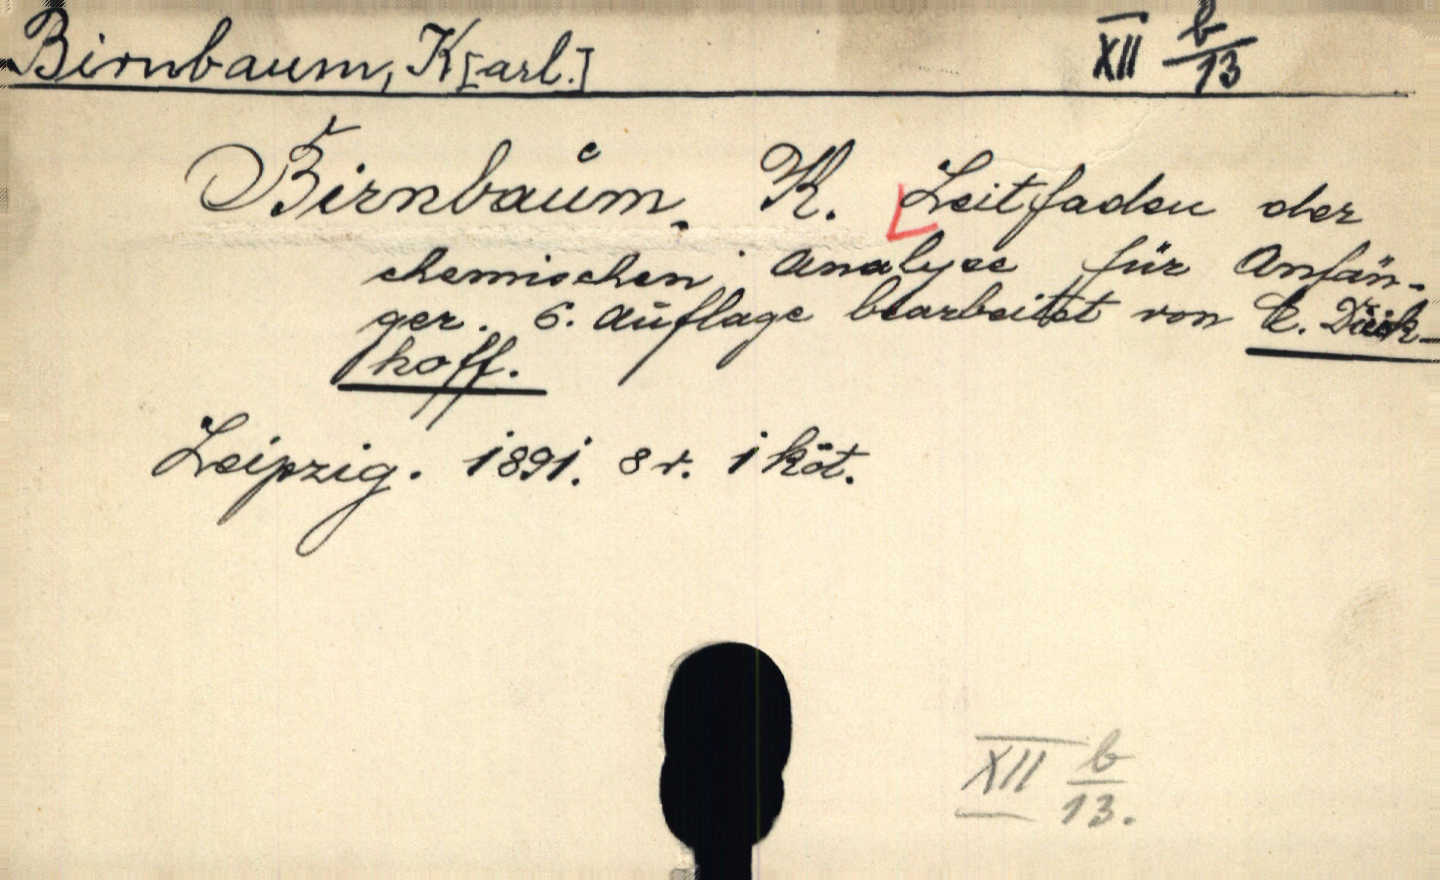 Birnbaum, K[arl.] XII b/13
Birnbaum, K. Leitfaden der
chemischen Analyse für Anfän-
ger. 6. Auflage bearbeitet von E. Dieck-
hoff.
Leipzig. 1891. 8 r. 1 köt.
XII b/13.